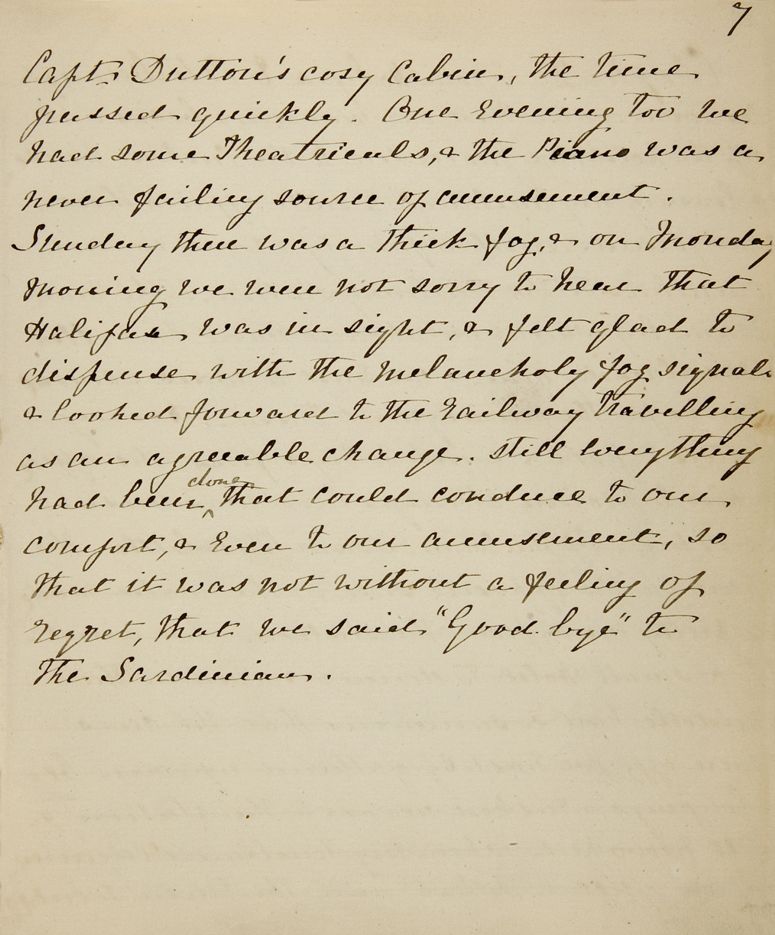 7
Capt. Dutton's cosy Cabin, the time
passed quickly. One Evening too we
had some Theatricals, & the Piano was a
never failing source of amusement.
Sunday there was a thick fog, & on Monday
Morning we were not sorry to hear that
Halifax was in sight, & felt glad to
dispense with the melancholy fog signals
& looked forward to the Railway travelling
as an agreeable change. Still Everything
done
had been ^ that could conduce to our
comfort, & Even to our amusement, so
that it was not without a feeling of
regret, that we said "Good bye" to
the Sardinian.